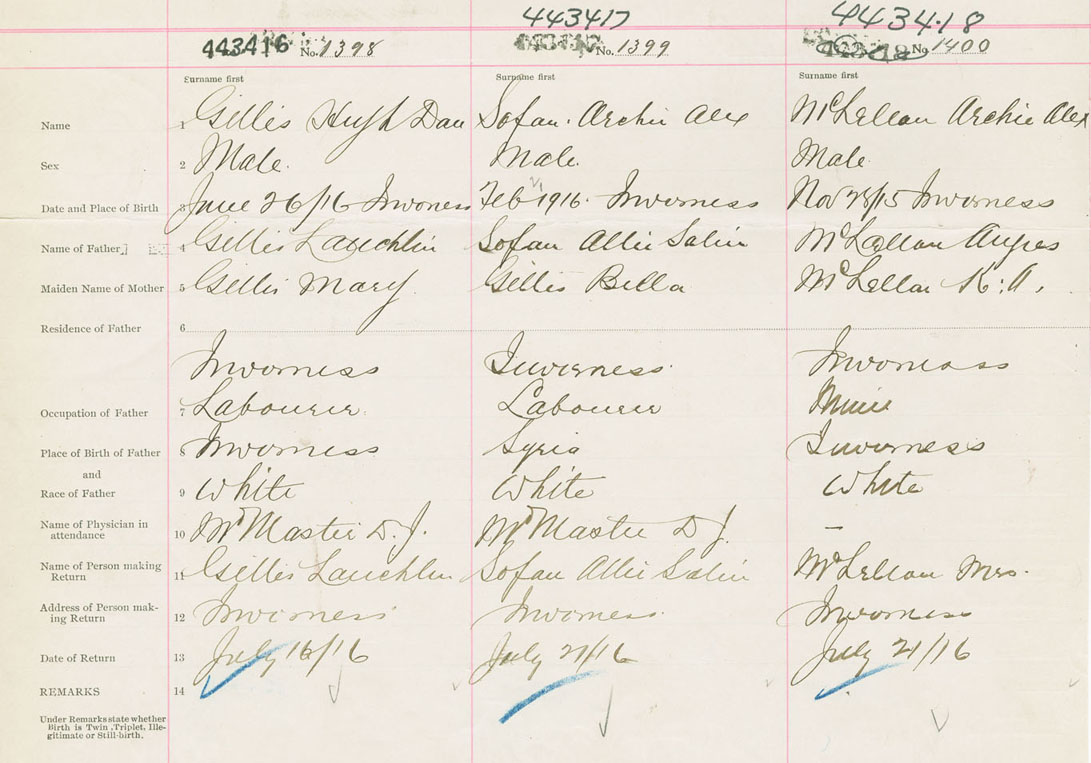 443417 443418
443416 No. 1398 No. 1399 No. 1400
Surname first Surname first Surname first
Name 1 Gillis Hugh Dan Sofan. Archie Alex McLellan Archie Alex
Sex 2 Male. Male. Male
Date and Place of Birth 3 June 26/16 Inverness Feb 21 1916. Inverness Nov 28/15 Inverness
Name of Father 4 Gillis Lauchlin Sofan Allie Salim McLellan Angus
Maiden Name of Mother 5 Gillis Mary Gillis Bella McLellan K: A.
Residence of Father 6
Inverness Inverness Inverness
Occupation of Father 7 Labourer Labourer Miner
Place of Birth of Father 8 Inverness Syria Inverness
and
Race of Father 9 White White White
Name of Physician in
attendance 10 McMaster D. J. McMaster D J. –
Name of Person making
Return 11 Gillis Lauchlin Sofan Allie Salim McLellan Mrs.
Address of Person mak-
ing Return 12 Inverness Inverness Inverness
Date of Return 13 July 16/16 July 21/16 July 21/16
REMARKS 14
Under Remarks state whether
Birth is Twin, Triplet, Ille-
gitimate or Still-birth.